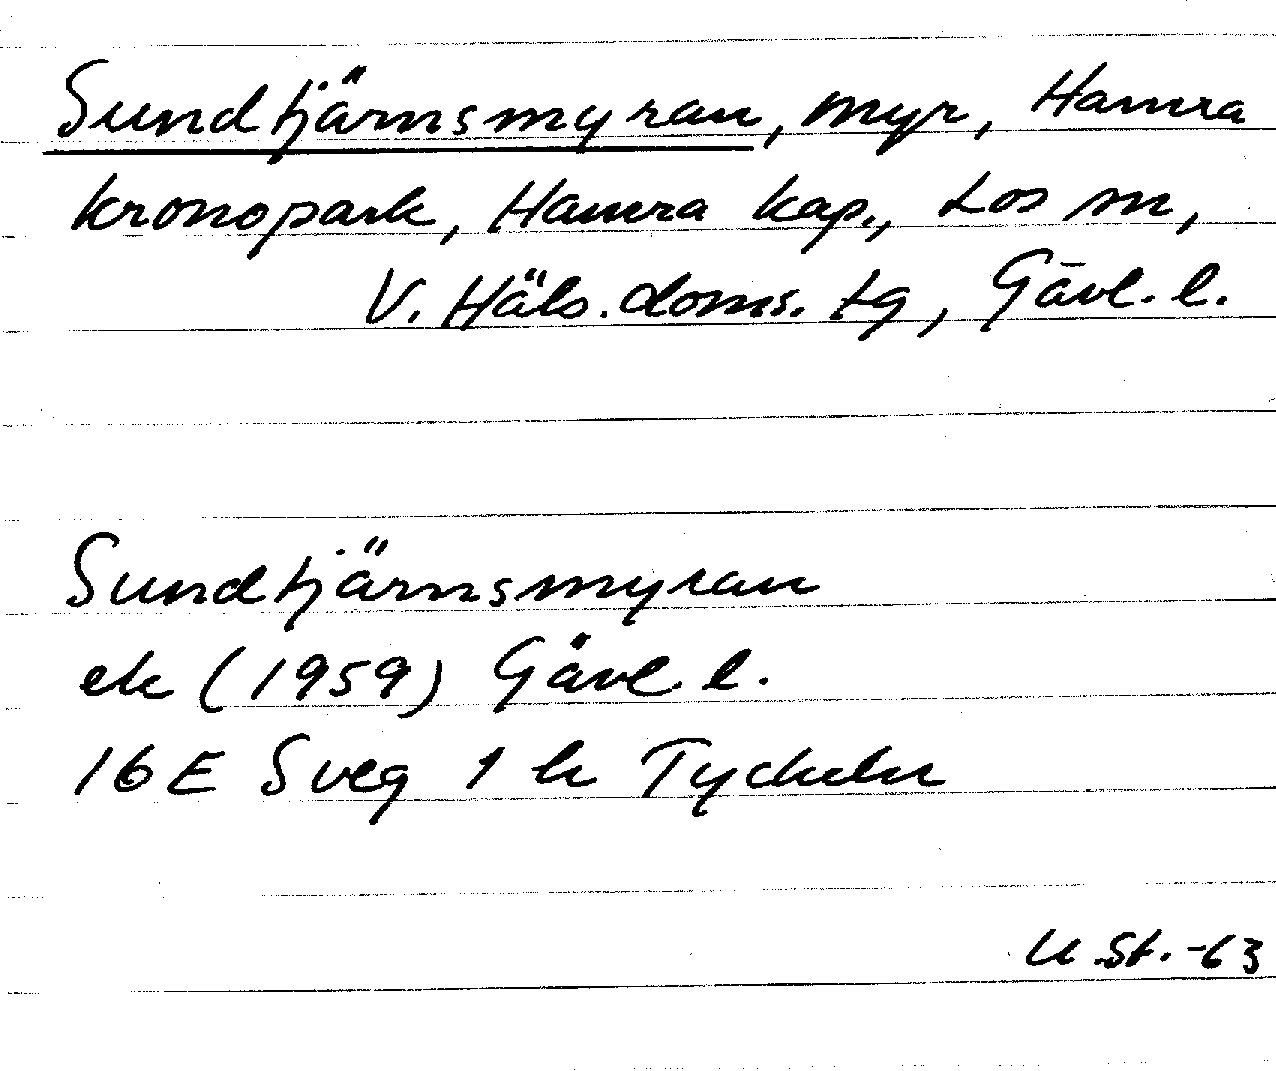 Sundtjärnsmyran, myr, Hamra
kronopark, Hamra kap., Los sn,
V. Häls. doms. tg, Gävl. l.
Sundtjärnsmyran
ek (1959) Gävl l.
16 E Sveg 1 h Tyckeln
U St. -63